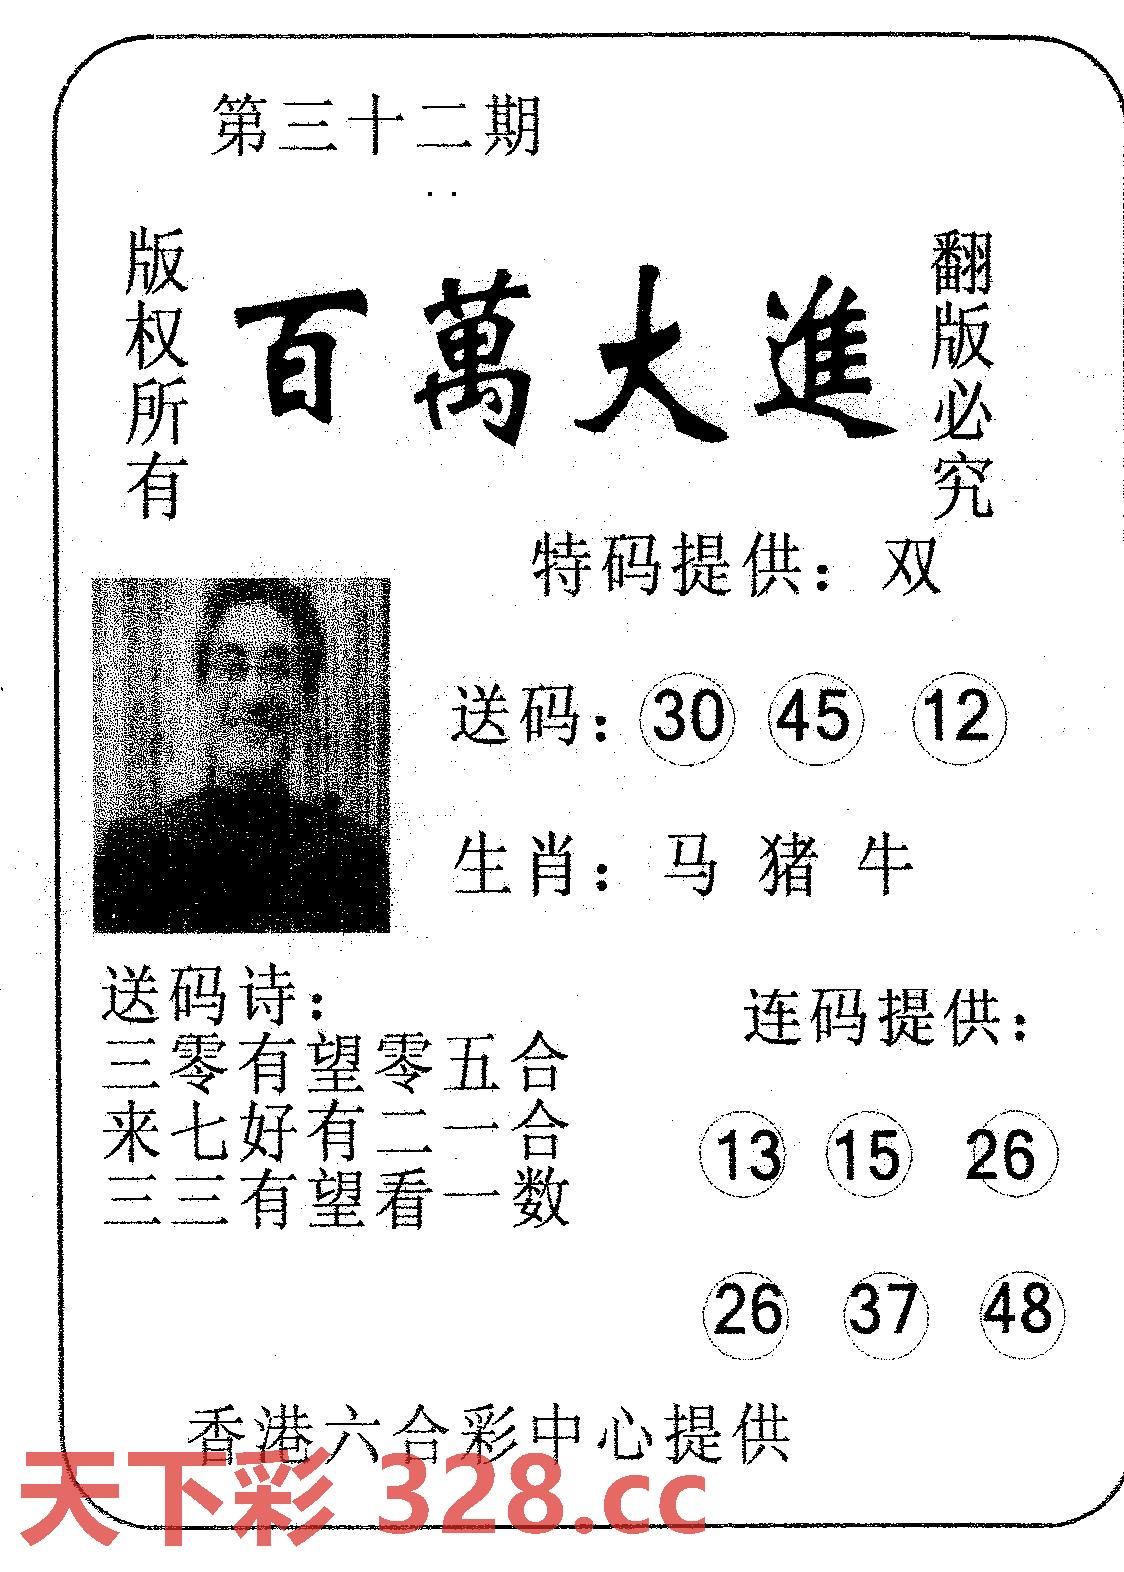 第三十二期
版权所有
百萬大進
翻版必究
特码提供：双
送码：30 45 12
生肖：马 猪 牛
送码诗：
三零有望零五合
来七好有二一合
三三有望看一数
连码提供：
13 15 26
26 37 48
香港六合彩中心提供
天下彩 328.cc